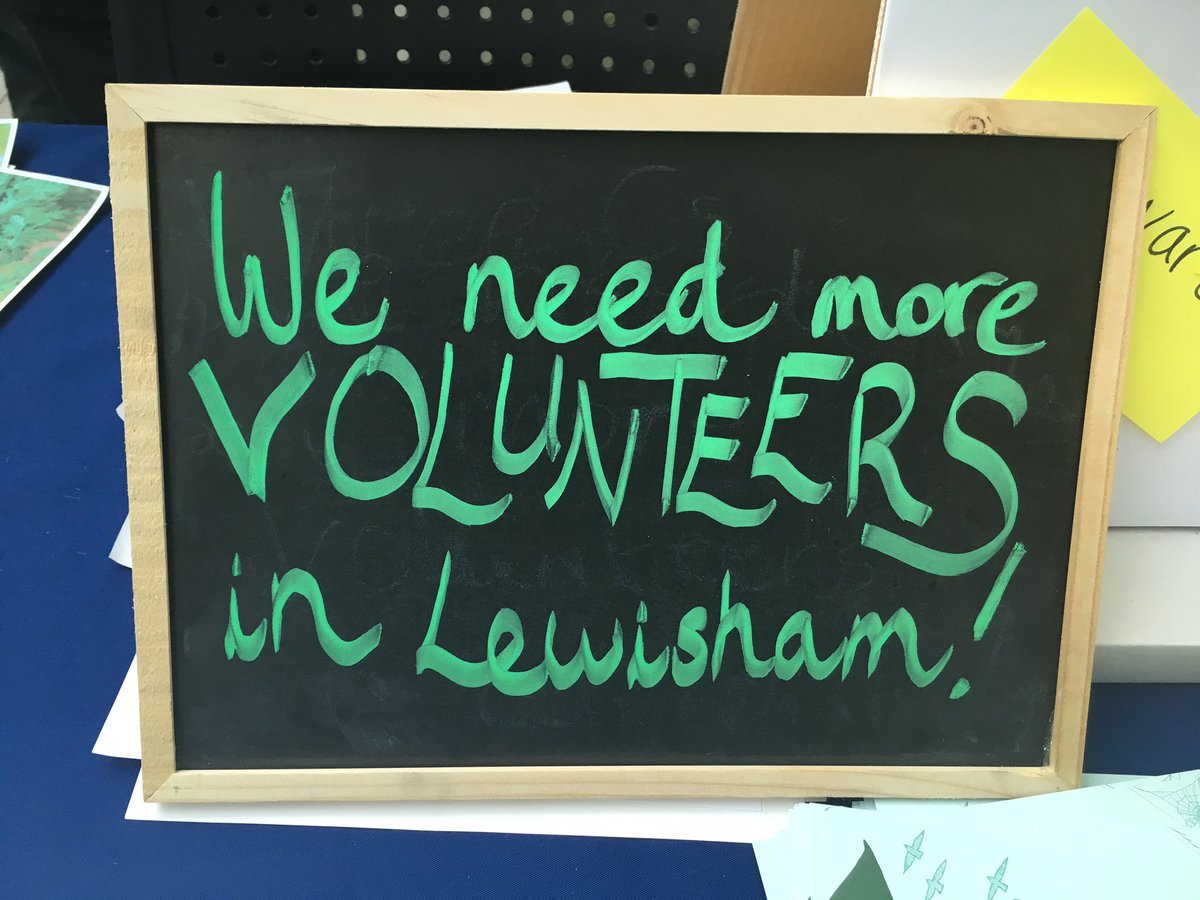 We need more
VOLUNTEERS
in Lewisham!